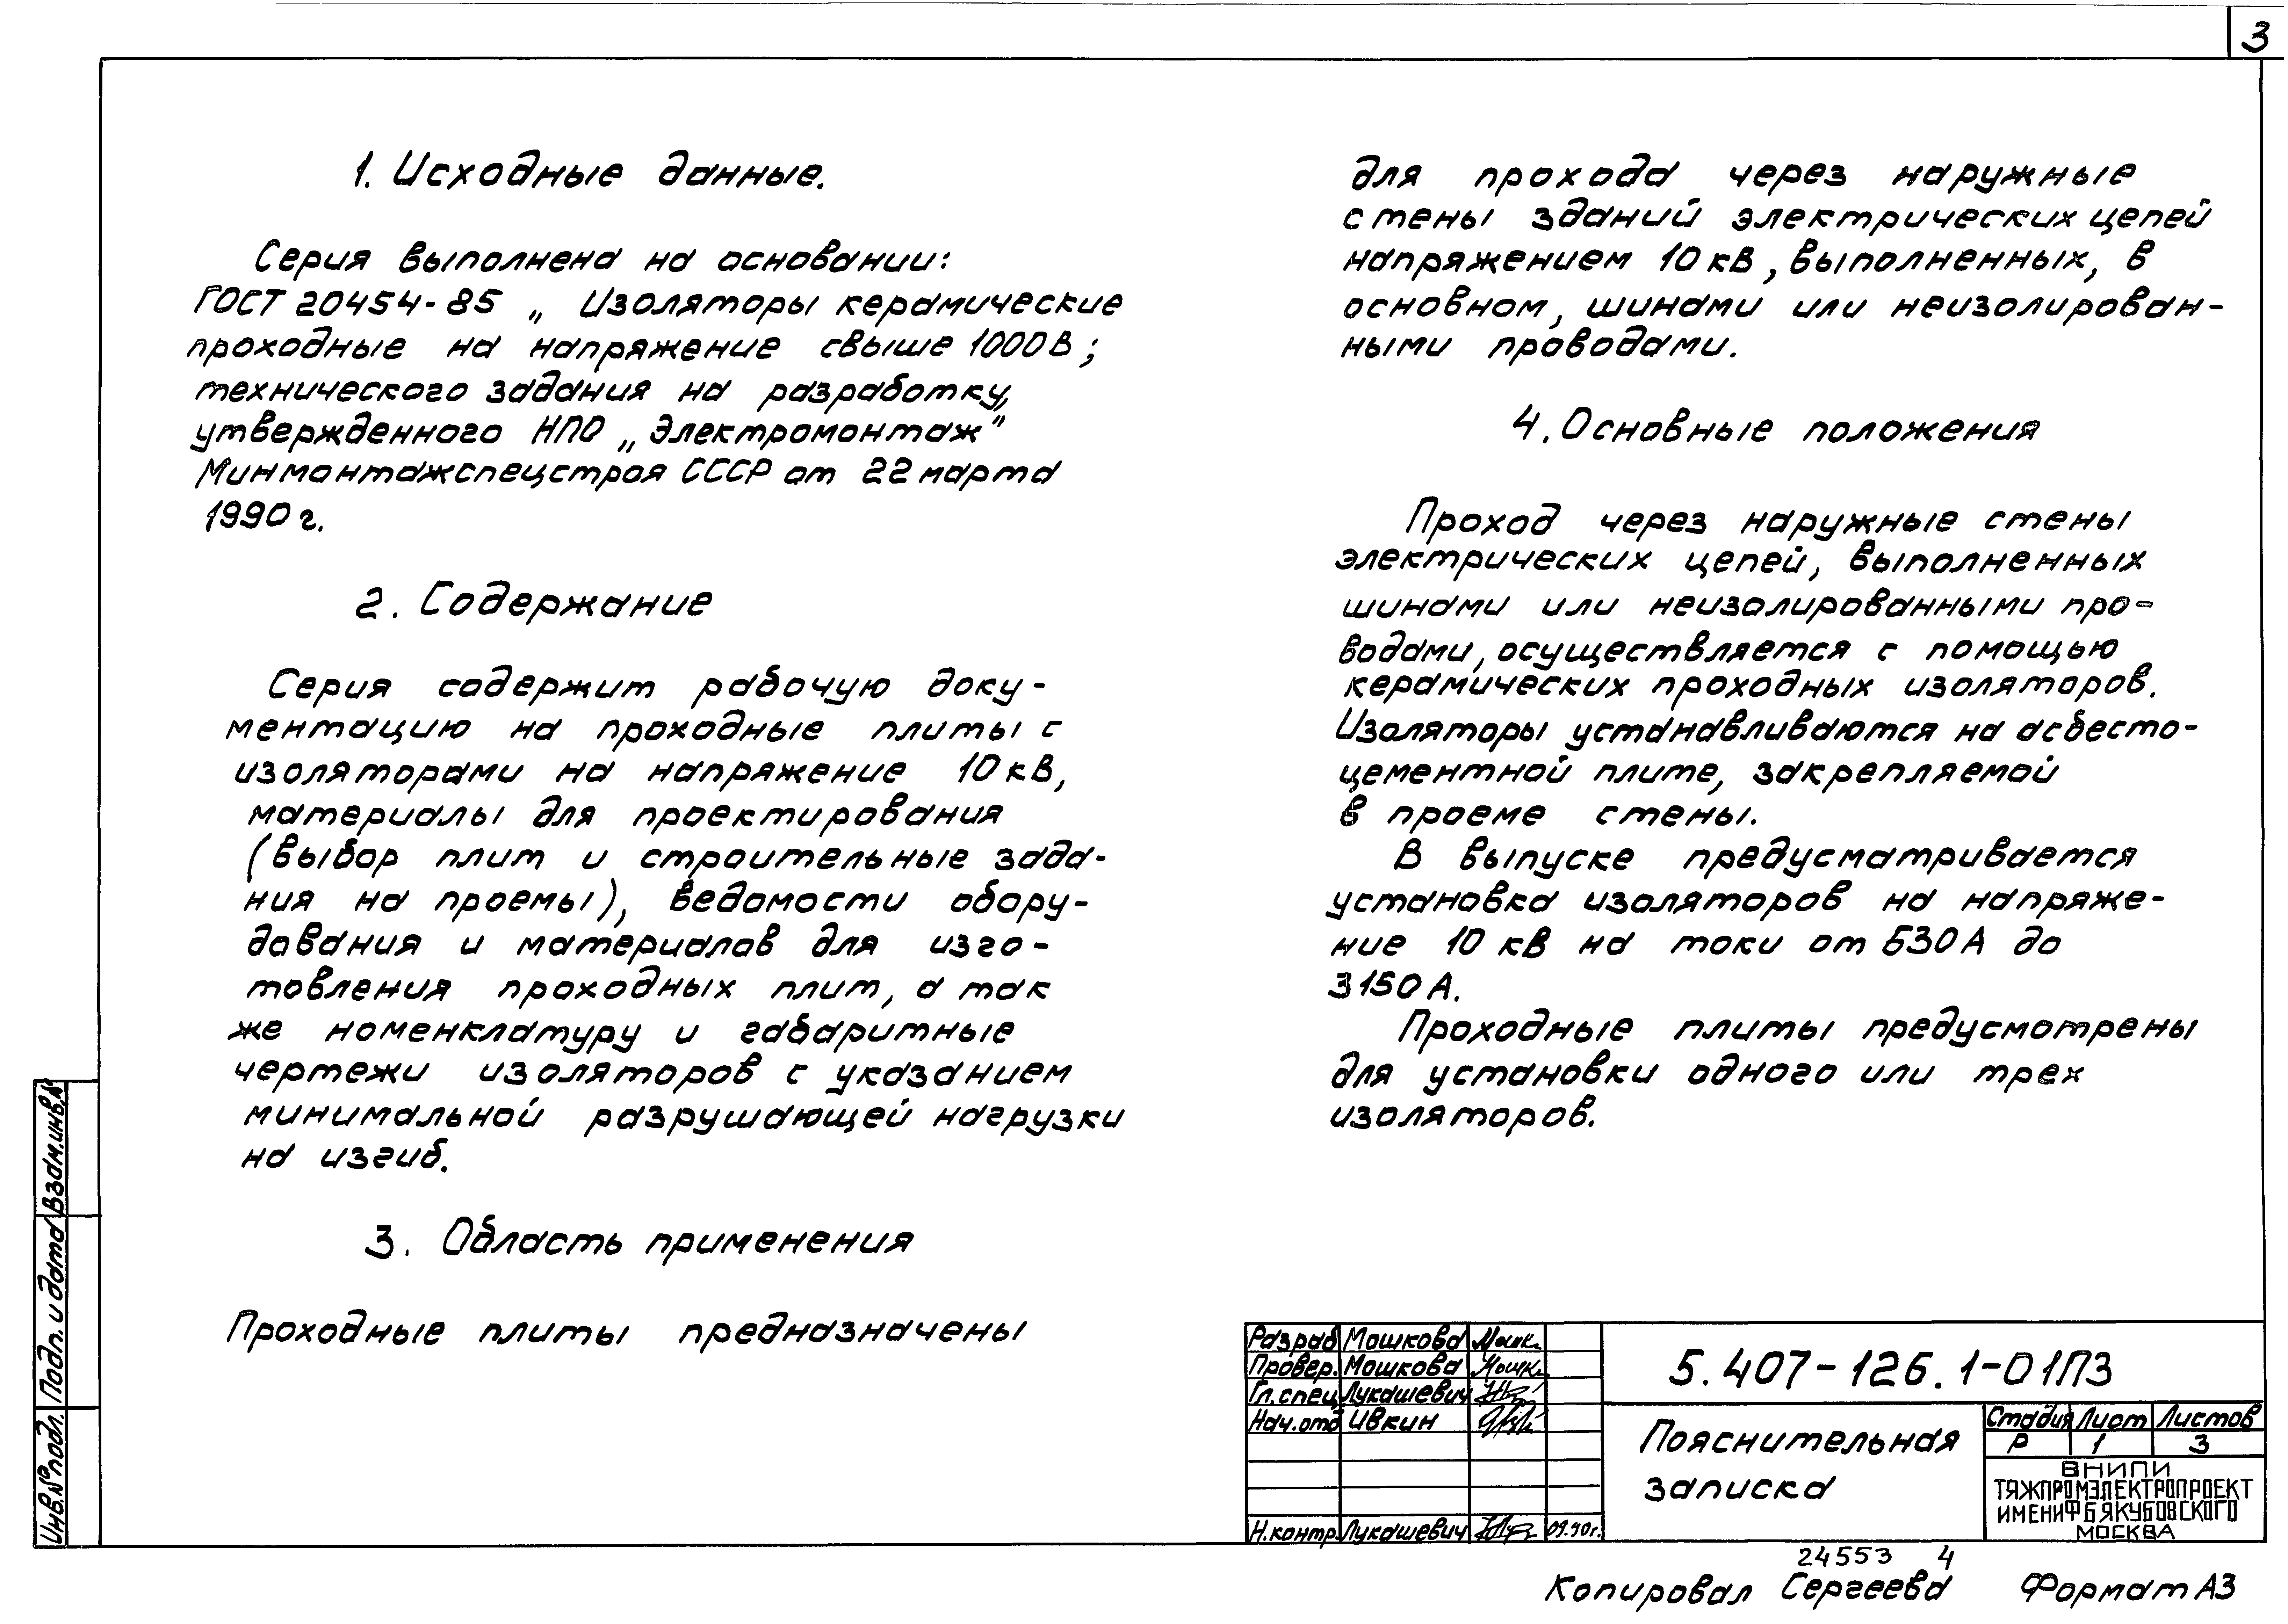 3
1. Исходные данные.
Серия выполнена на основании:
ГОСТ 20454-85 „ Изоляторы керамические
проходные на напряжение свыше 1000В;
технического задания на разработку,
утвержденного НПО „Электромонтаж"
Минмонтажспецстроя СССР от 22 марта
1990 г.
2. Содержание
Серия содержит рабочую доку-
ментацию на проходные плиты с
изоляторами на напряжение 10 кВ,
материалы для проектирования
(выбор плит и строительные зада-
ния на проемы), ведомости обору-
дования и материалов для изго-
товления проходных плит, а так
же номенклатуру и габаритные
чертежи изоляторов с указанием
минимальной разрушающей нагрузки
на изгиб.
3. Область применения
Проходные плиты предназначены
для прохода через наружные
стены зданий электрических цепей
напряжением 10 кВ, выполненных, в
основном, шинами или неизолирован-
ными проводами.
4. Основные положения
Проход через наружные стены
электрических цепей, выполненных
шинами или неизолированными про-
водами, осуществляется с помощью
керамических проходных изоляторов.
Изоляторы устанавливаются на асбесто-
цементной плите, закрепляемой
в проеме стены.
В выпуске предусматривается
установка изоляторов на напряже-
ние 10 кВ на токи от 630 А до
3150 А.
Проходные плиты предусмотрены
для установки одного или трех
изоляторов.
Взам.инв.№
Подп. и дата
Инв.№ подл.
Разраб Мошкова Мошк.
Провер. Мошкова Мошк.
Гл.спец Лукашевич
Нач.отд Ивкин
Н.контр. Лукашевич 09.90г.
5.407-126.1-01ПЗ
Пояснительная
записка
Стадия Лист Листов
Р 1 3
ВНИПИ
ТЯЖПРОМЭЛЕКТРОПРОЕКТ
ИМЕНИ Ф Б ЯКУБОВСКОГО
МОСКВА
24553 4
Копировал Сергеева Формат А3